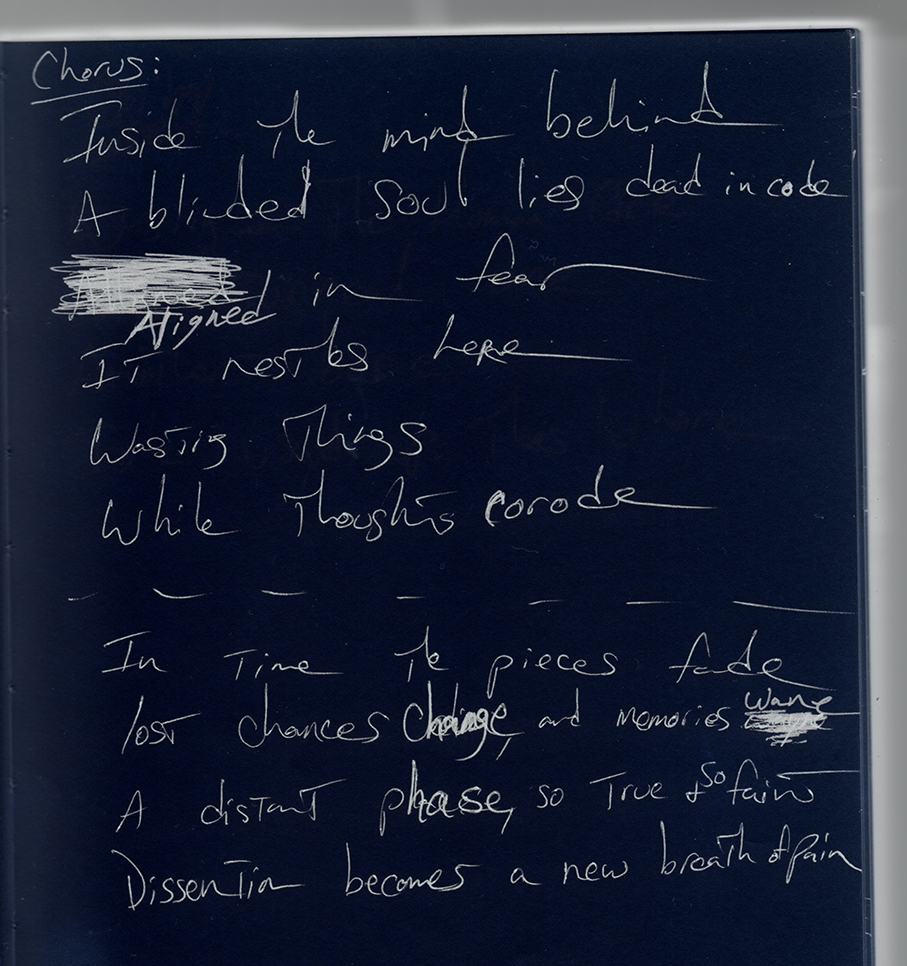 Chorus:
Inside The mind behind
A blinded Soul lies dead in code
Aligned in fear
IT nestles here
Wasting Things
While Thoughts corode
In Time The pieces fade
lost chances Change, and memories wane
A distant phase, so True & so faint
Dissention becomes a new breath of pain